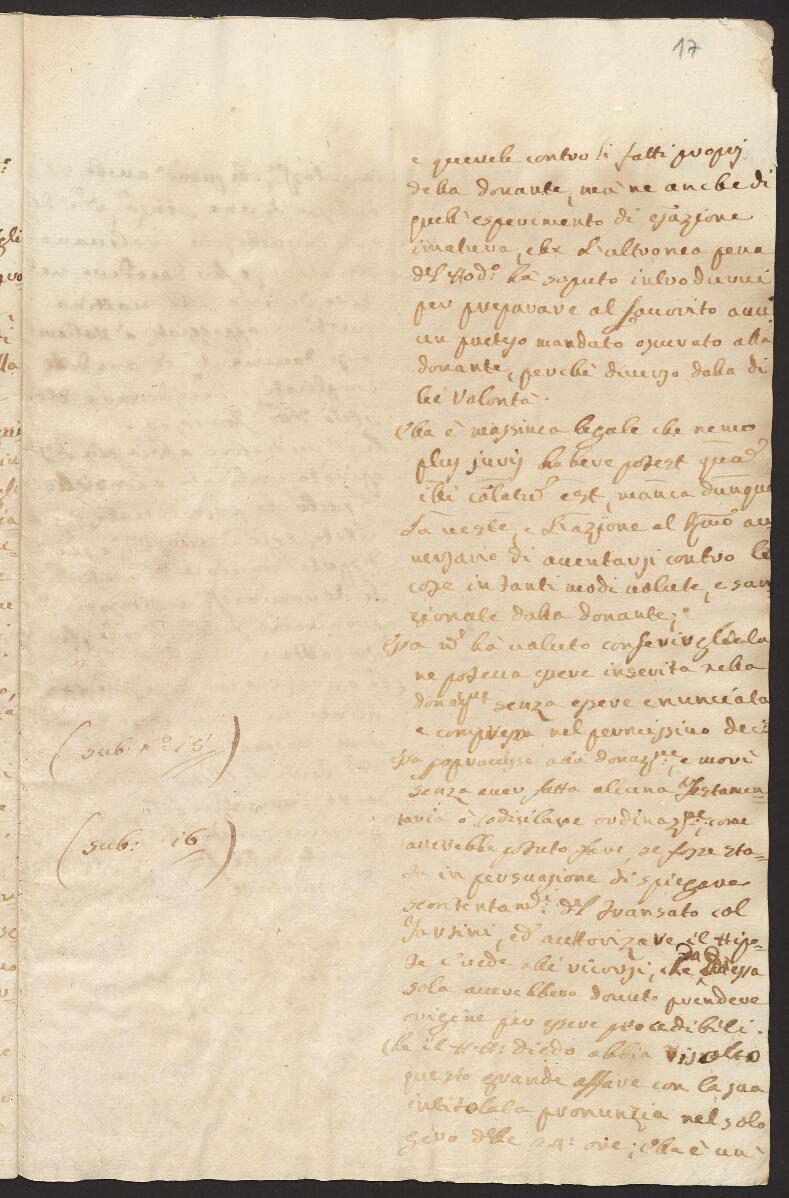 17
e querele contro li fatti proprj
della donante, mà ne anche di
quell'esperimento di essazione
che l'altronea pena
del Hod.º hà saputo introdurvi
per preparare al favorito
un preteso mandato operato alla
donante, perche diverso dalla di
lei Volontà.
Ella è massima legale che nemo
plus juris habere potest quã
ibi est, manca dunque
la veste, e l'azione al
versario di aventarsi contro le
cose in tanti modi volute, e san-
zionate dalla donante;
Essa nõ hà voluto conferirgliela
ne poteva essere inserita nella
donaz.ne senza essere enunciata
e compresa nel
Essa sopravisse alla donaz.ne, e morì
senza aver fatta alcuna Testamen-
taria ò codicilare ordinaz.ne, come
averebbe potuto fare, se fosse sta-
ta in persuasione di spiegare
del transato col
Tarsini, ed auttorizare il Nipo-
te Erede alli ricorsi, che da essa
sola averebbero dovuto prendere
origine per essere procedibili.
Che il diedo abbia risolto
questo grande affare con la sua
intitolata pronunzia nel solo
giro delle 24: ore; Ella è un'
(sub: nº 15)
(sub: 16)